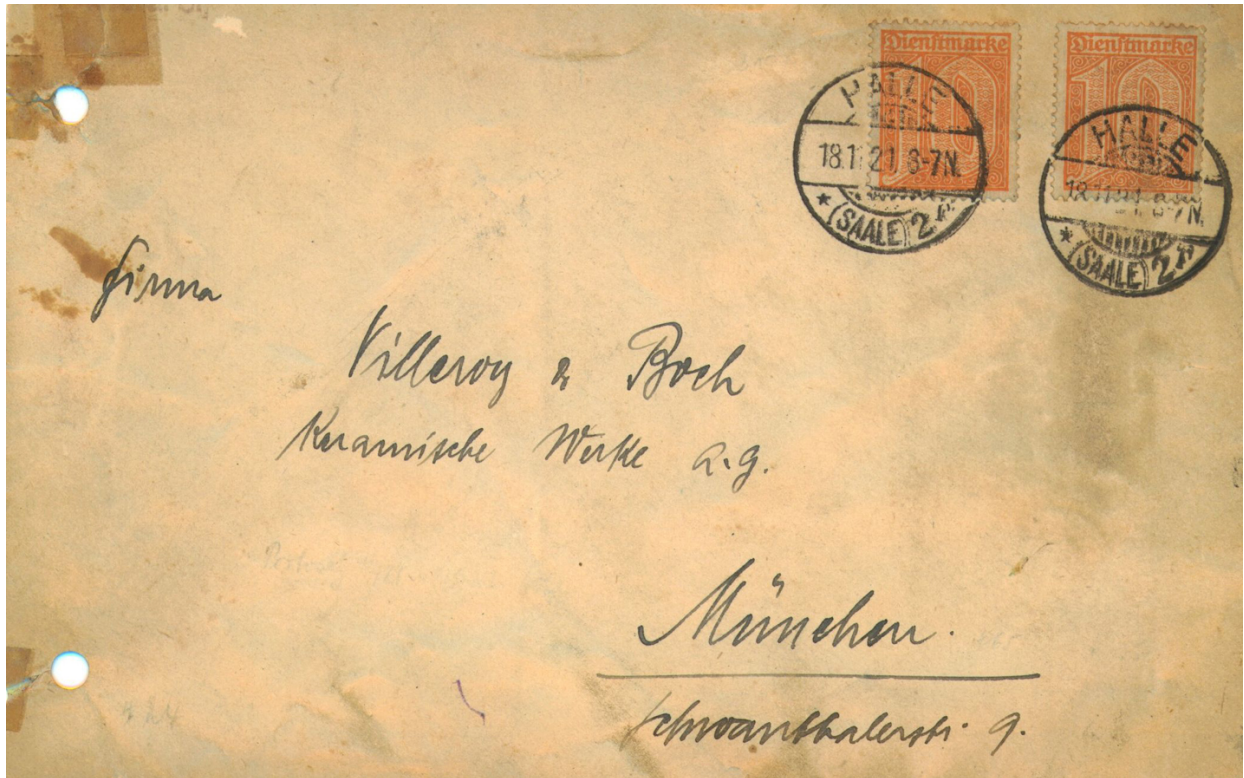 Dienstmarke
10
Dienstmarke
10
HALLE
18.11.21 6-7N.
* (SAALE) 2
HALLE
* (SAALE) 2
Firma
Villeroy & Boch
Keramische Werke A.G.
München.
Schwanthalerstr. 9.